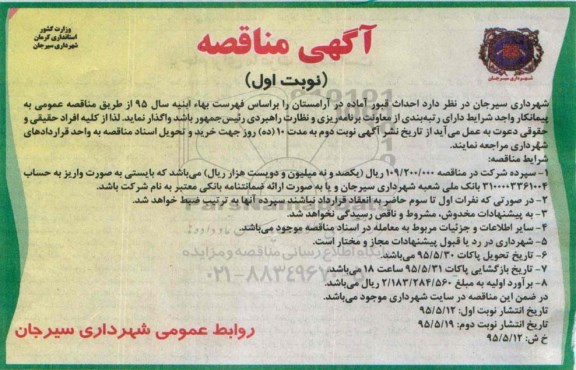 وزارت کشور
استانداری کرمان
شهرداری سیرجان
آگهی مناقصه
(نوبت اول)
شهرداری سیرجان
شهرداری سیرجان در نظر دارد احداث قبور آماده در آرامستان را براساس فهرست بهاء ابنیه سال ۹۵ از طریق مناقصه عمومی به
پیمانکار واجد شرایط دارای رتبه‌بندی از معاونت برنامه‌ریزی و نظارت راهبردی رئیس‌جمهور باشد واگذار نماید. لذا از کلیه افراد حقیقی و
حقوقی دعوت به عمل می‌آید از تاریخ نشر آگهی نوبت دوم به مدت ۱۰ (ده) روز جهت خرید و تحویل اسناد مناقصه به واحد قراردادهای
شهرداری مراجعه نمایند.
شرایط مناقصه:
۱- سپرده شرکت در مناقصه ۱۰۹/۲۰۰/۰۰۰ ریال (یکصد و نه میلیون و دویست هزار ریال) می‌باشد که بایستی به صورت واریز به حساب
۳۱۰۰۰۰۳۳۶۱۰۰۴ بانک ملی شعبه شهرداری سیرجان و یا به صورت ارائه ضمانتنامه بانکی معتبر به نام شرکت باشد.
۲- در صورتی که نفرات اول تا سوم حاضر به انعقاد قرارداد نباشند سپرده آنها به ترتیب ضبط خواهد شد.
۳- به پیشنهادات مخدوش، مشروط و ناقص رسیدگی نخواهد شد.
۴- سایر اطلاعات و جزئیات مربوط به معامله در اسناد مناقصه موجود می‌باشد.
۵- شهرداری در رد یا قبول پیشنهادات مجاز و مختار است.
۶- تاریخ تحویل پاکات ۹۵/۵/۳۰ می‌باشد.
۷- تاریخ بازگشایی پاکات ۹۵/۵/۳۱ ساعت ۱۸ می‌باشد.
۸- برآورد اولیه به مبلغ ۲/۱۸۳/۲۸۴/۵۶۰ ریال می‌باشد.
در ضمن این مناقصه در سایت شهرداری موجود می‌باشد.
تاریخ انتشار نوبت اول: ۹۵/۵/۱۲
تاریخ انتشار نوبت دوم: ۹۵/۵/۱۹
خ ش: ۹۵/۵/۱۲
روابط عمومی شهرداری سیرجان
پایگاه اطلاع رسانی مناقصه و مزایده